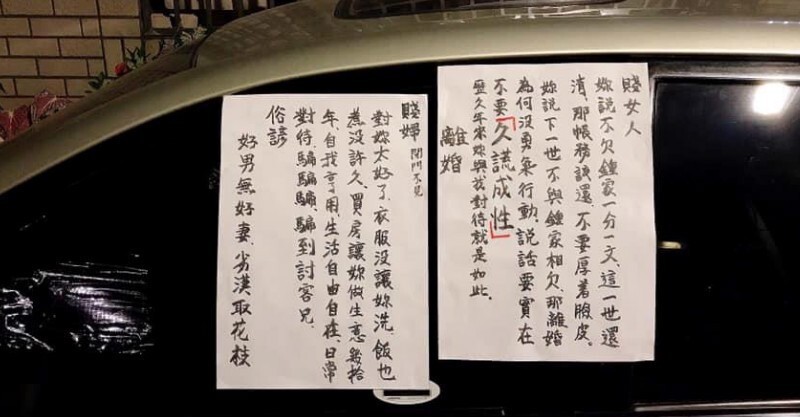 賤女人
妳說不欠鍾家一分一文、這一世還
清,那帳務該還、不要厚着臉皮。
妳說下一世不與鍾家相欠、那離婚
為何沒勇氣行動,說話要實在
不要「久謊成性」
歷久年來妳與我對待就是如此。
離婚
賤婦 閉門不見
對妳太好了、衣服没讓妳洗、飯也
煮没許久、買房讓妳做生意幾拾
年、自我享用、生活自由自在、日常
對待、騙騙騙、騙到討客兄、
俗諺
好男無好妻、劣漢取花枝